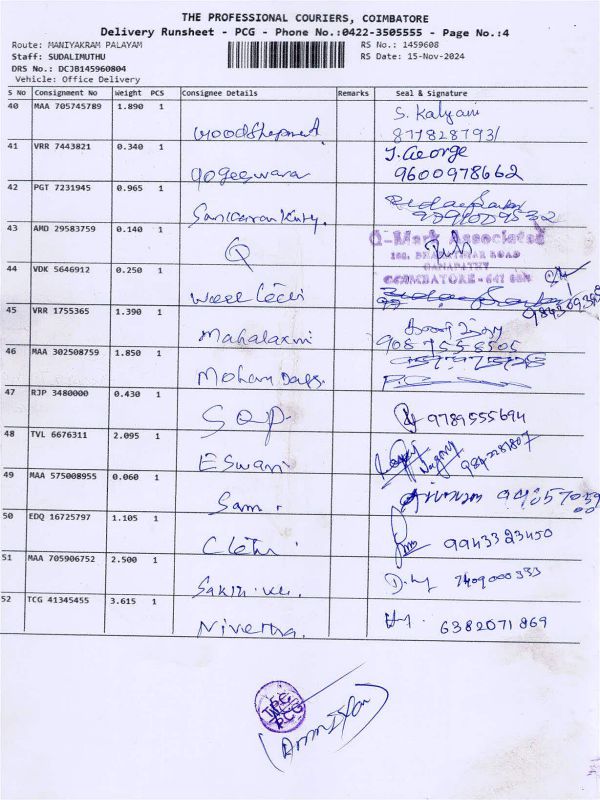 THE PROFESSIONAL COURIERS, COIMBATORE
Delivery Runsheet - PCG - Phone No.:0422-3505555 - Page No.:4
Route: MANIYAKRAM PALAYAM
RS No.: 1459608
Staff: SUDALIMUTHU
RS Date: 15-Nov-2024
DRS No.: DCJB145960804
Vehicle: Office Delivery
S No Consignment No Weight PCS Consignee Details Remarks Seal & Signature
40 MAA 705745789 1.890 1
S. Kalyani
877828793/
41 VRR 7443821 0.340 1
J. George
Yogeeswara 9600978662
42 PGT 7231945 0.965 1
43 AMD 29583759 0.140 1
Q-Mark Associated
Q
ROAD
GANAPATHY
44 VDK 5646912 0.250 1
COIMBATORE - 641
45 VRR 1755365 1.390 1
Mahalaxmi
9087558505
46 MAA 302508759 1.850 1
Mohan Dass.
47 RJP 3480000 0.430 1
SOP. 9789555694
48 TVL 6676311 2.095 1
Eswari
49 MAA 575008955 0.060 1
Sam.
50 EDQ 16725797 1.105 1
9943323450
51 MAA 705906752 2.500 1
7409000333
52 TCG 41345455 3.615 1
Nivetha. 6382071869
PCG